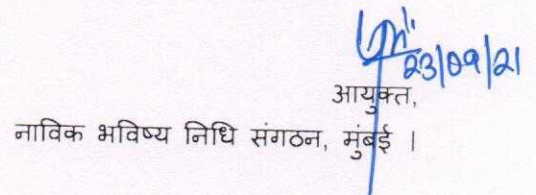 23/09/21
आयुक्त,
नाविक भविष्य निधि संगठन, मुंबई ।